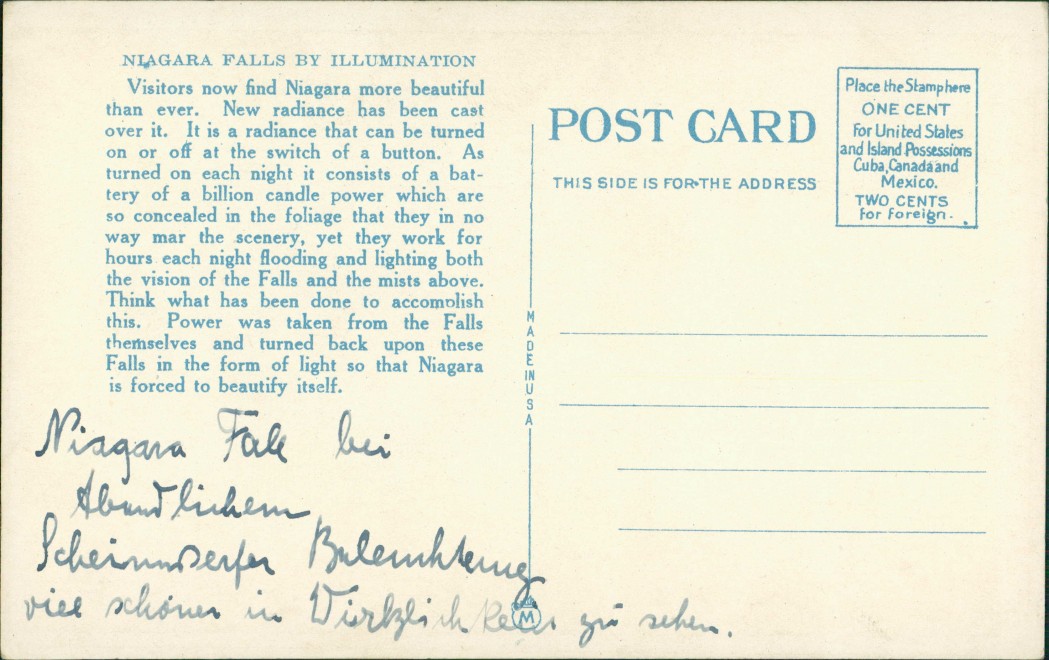 NIAGARA FALLS BY ILLUMINATION
Visitors now find Niagara more beautiful
than ever. New radiance has been cast
over it. It is a radiance that can be turned
on or off at the switch of a button. As
turned on each night it consists of a bat-
tery of a billion candle power which are
so concealed in the foliage that they in no
way mar the scenery, yet they work for
hours each night flooding and lighting both
the vision of the Falls and the mists above.
Think what has been done to accomplish
this. Power was taken from the Falls
themselves and turned back upon these
Falls in the form of light so that Niagara
is forced to beautify itself.
Niagara Fall bei
Abendlichem
Scheinwerfer Beleuchtung
viel schöner in Wirklichkeit zu sehen.
MADE IN USA
M
POST CARD
THIS SIDE IS FOR THE ADDRESS
Place the Stamp here
ONE CENT
For United States
and Island Possessions
Cuba, Canada and
Mexico.
TWO CENTS
for foreign.